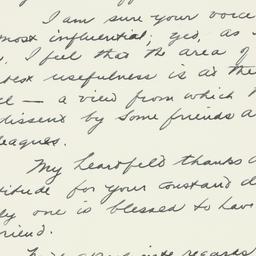 I am sure your voice
most influential; yes, as
I feel that the area of
best usefulness is at the
— a view from which
dissent by some friends a
leagues.
My heartfelt thanks a
titude for your constant d
ly one is blessed to have
riend.
regards